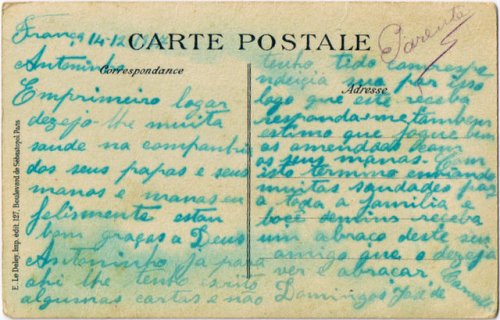 França 14-12
CARTE POSTALE
Parente
Antoninho
Correspondance
Emprimeiro logar
dezejo-lhe muita
saude na companhia
dos seus papas e seus
manos e manas eu
felismente estou
bom graças a Deus
Antoninho Ja para
ahi lhe tenho
algumas cartas e não
tenho tido
sua por isso
Adresse
logo que este receba
responda-me tambem
estimo que jogue bem
as amendoas com
os seus manas. Com
isto termino enviando
muitas saudades para
a toda a familia e
você receba
um abraço deste seu
amigo que o dezeja
ver e abraçar
Domingos José de
E. Le Deley, Imp. édit. 127, Boulevard de Sébastopol Paris